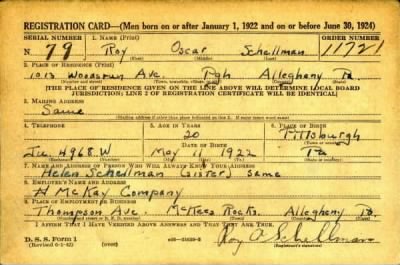 REGISTRATION CARD—(Men born on or after January 1, 1922 and on or before June 30, 1924)
SERIAL NUMBER 1. NAME (Print) ORDER NUMBER
N 79 Roy Oscar Schellman 11721
(First) (Middle) (Last)
2. PLACE OF RESIDENCE (Print)
1013 Woodsrun Ave. Pgh Allegheny Pa
(Number and street) (Town, township, village, or city) (County) (State)
[THE PLACE OF RESIDENCE GIVEN ON THE LINE ABOVE WILL DETERMINE LOCAL BOARD
JURISDICTION; LINE 2 OF REGISTRATION CERTIFICATE WILL BE IDENTICAL]
3. MAILING ADDRESS
Same
4. TELEPHONE 5. AGE IN YEARS 6. PLACE OF BIRTH
20 Pittsburgh
DATE OF BIRTH
4968 W May 11 1922 Pa
7. NAME AND ADDRESS OF PERSON WHO WILL ALWAYS KNOW YOUR ADDRESS
Helen Schellman (sister) same
8. EMPLOYER'S NAME AND ADDRESS
McKay Company
9. PLACE OF EMPLOYMENT OR BUSINESS
Thompson Ave. McKees Rocks Allegheny Pa.
(Number and street or R. F. D. number) (Town) (County) (State)
I AFFIRM THAT I HAVE VERIFIED ABOVE ANSWERS AND THAT THEY ARE TRUE.
D. S. S. Form 1
(Revised 6-1-42) (over)
Roy O Schellman
(Registrant's signature)